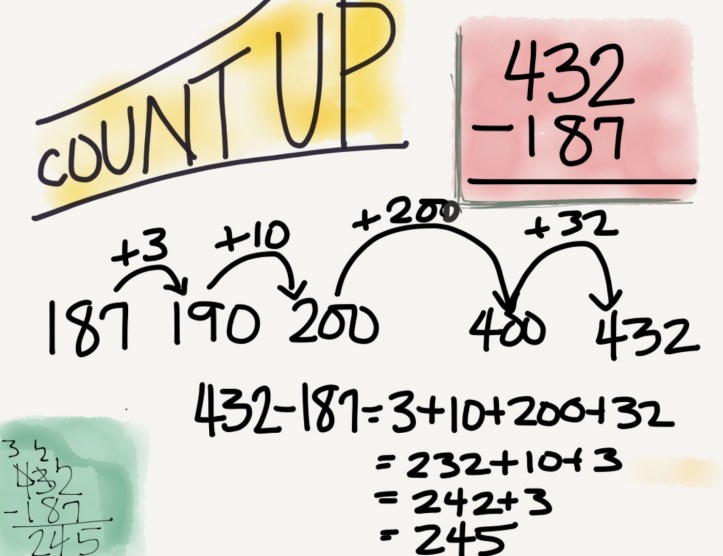 COUNT UP
432
-187
+3 +10 +200 +32
187 190 200 400 432
432-187=3+10+200+32
=232+10+3
=242+3
=245
3 2
432
-187
245